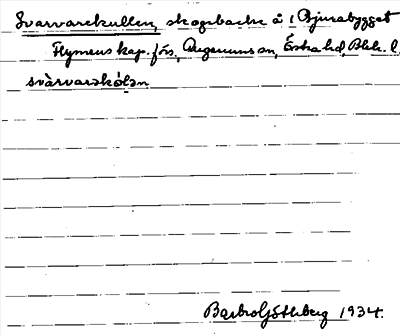 Svarvarekullen, skogsbacke å 1 Bjurabygget
Flymens kap. förs, Augerums sn, Östra hd, Blek. l.
svàrvarəkølən
Barbro Göthberg 1934.